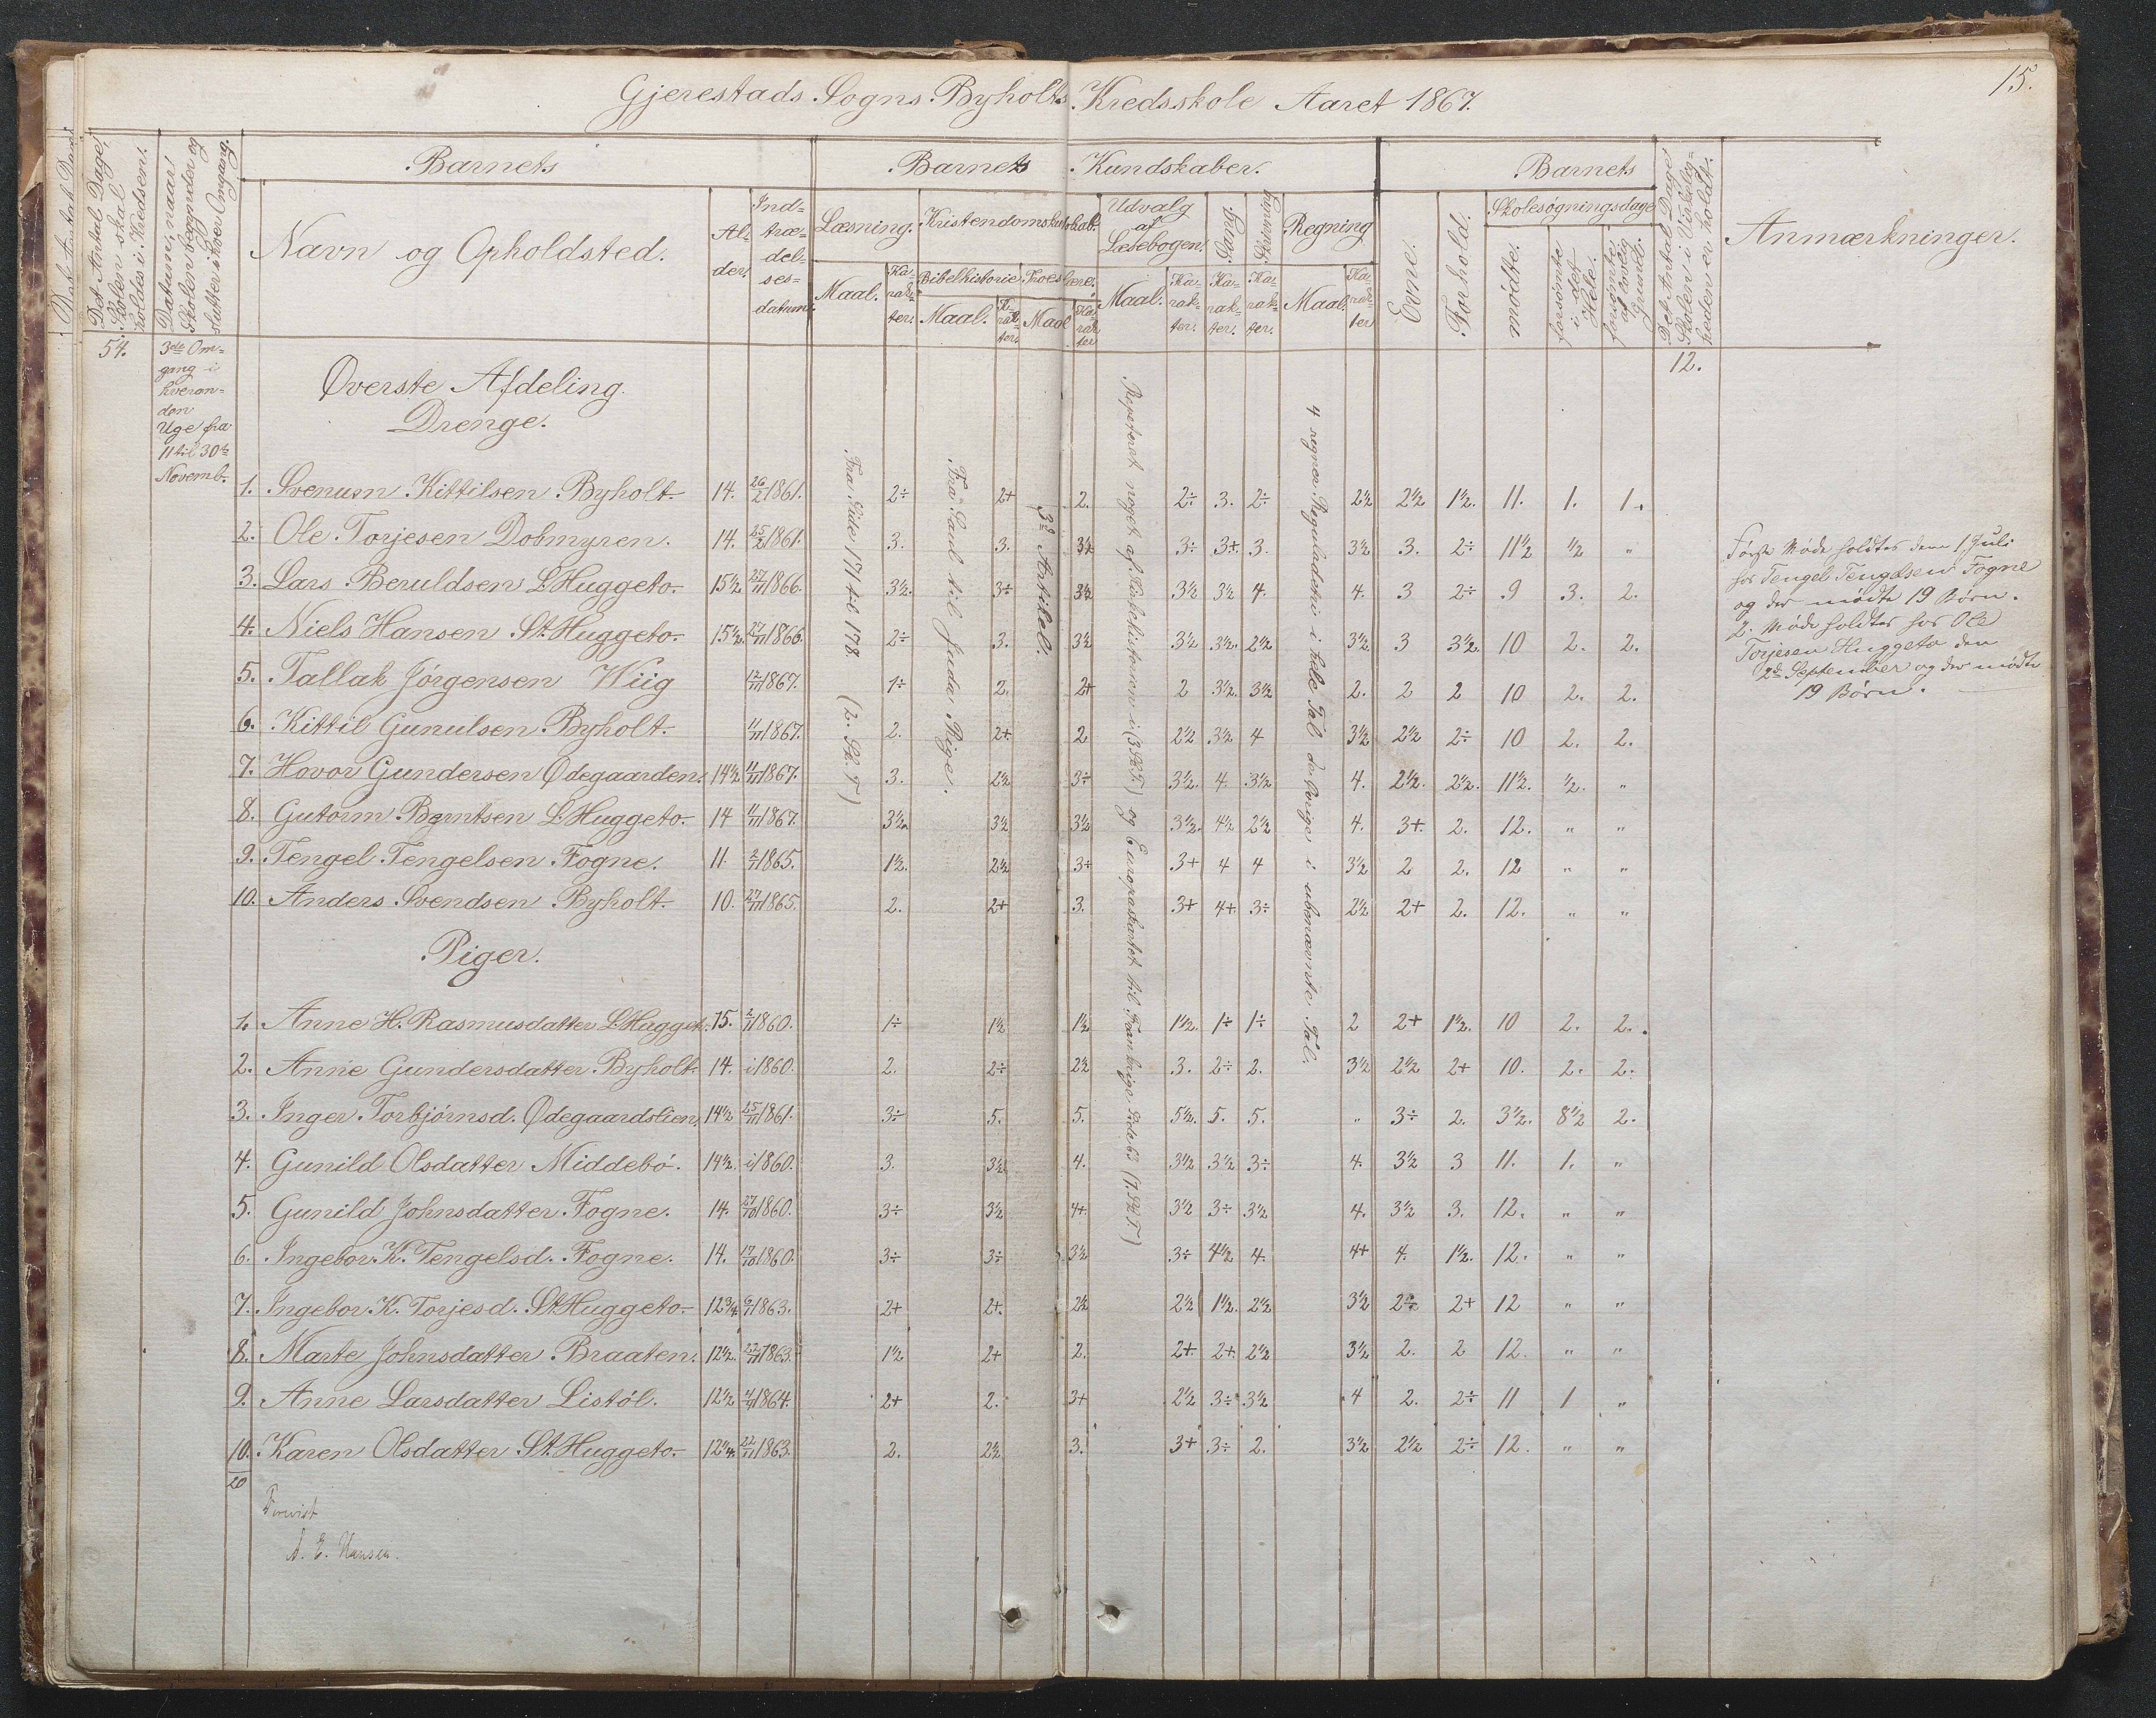 15.
Gjerestads Sogns Byholts Kredsskole Aaret 1867.
Det Antal Dage, Skolen skal holdes i Kredsen.
Datum, naar Skolen begynder og slutter i hver Omgang.
Barnets
Navn og Opholdsted.
Alder.
Indtrædelsesdatum.
Barnets Kundskaber.
Læsning.
Maal. Karakter.
Kristendomskundskab.
Bibelhistorie. Troeslære.
Maal. Karakter. Maal Karakter
Udvalg af Læsebogen.
Maal. Karakter.
Sang. Karakter.
Skrivning Karakter.
Regning
Maal. Karakter
Evne.
Forhold.
Barnets
Skolesøgningsdage
mødte.
forsømte i det Hele.
forsømte af lovlig Grund.
Det Antal Dage Skolen i Virkeligheden er holdt.
Anmærkninger.
54.
3die Om-
gang i
hveran-
den
Uge fra
11 til 30te
Novemb.
12.
Øverste Afdeling.
Drenge.
Fra Side 171 til 178. (2. Sk. T)
Fra Saul til Juda Rige.
3d Artikel.
Repeteret noget af Kirkehistorien i (3 Sk T) og Europakartet til Frankrige Side 63 (7. Sk T)
4 regner Reguladetri i hele Tal de øvrige i ubenævnte Tal.
1. Svenum Kittilsen Byholt 14. 26/2 1861. 2÷ 2+ 2. 2÷ 3. 2÷ 2½ 2½ 1½. 11. 1. 1.
2. Ole Torjesen Dobmyren. 14. 25/2 1861. 3. 3. 3½ 3÷ 3+ 3. 3½ 3. 2÷ 11½ ½ "
3. Lars Beruldsen L. Huggeto. 15½ 27/11 1866. 3½. 3÷ 3½ 3½ 3½ 4. 4. 3 2÷ 9 3. 2.
4. Niels Hansen St. Huggeto. 15½. 27/11 1866. 2÷ 3. 3½ 3½ 3½. 2½ 3½ 3 3½. 10 2. 2.
5. Tallak Jörgensen Wiig 12/11 1867. 1÷ 2. 2+ 2 3½. 3½ 2. 2 2 10 2. 2.
6. Kittil Gunulsen Byholt. 11/11 1867. 2. 2+ 2 2½ 3½ 4 3½ 2½ 2÷ 10 2. 2.
7. Hovor Gundersen Ødegaarden. 14½ 11/11 1867. 3. 2½ 3÷ 3½. 4. 3½ 4. 2½. 2½. 11½. ½. "
8. Gutorm Berntsen L. Huggeto. 14 11/11 1867. 3½. 3½ 3½ 3½. 4½ 2½ 4. 3+. 2. 12. " "
9. Tengel Tengelsen Fogne. 11. 2/11 1865. 1½. 2½ 3÷ 3+ 4 4 3½ 2 2. 12 " "
10. Anders Svendsen Byholt. 10. 27/11 1865. 2. 2+ 3. 3+ 4+ 3÷ 2½ 2+ 2. 12. " "
Piger.
1. Anne H. Rasmusdatter L. Hugget. 15. 2/11 1860. 1÷ 1½ 1½ 1½. 1÷ 1÷ 2 2+ 1½. 10 2. 2.
2. Anne Gundersdatter Byholt. 14. i 1860. 2. 2÷ 2½ 3. 2÷ 2. 3½ 2½ 2+ 10. 2. 2.
3. Inger Torbjörnsd. Ødegaardslien. 14½ 25/11 1861. 3÷ 5. 5. 5½. 5. 5. " 3÷ 2. 3½. 8½ 2.
4. Gunild Olsdatter Middebö. 14½. i 1860. 3. 3½ 4. 3½ 3½ 3÷ 4. 3½ 3 11. 1. "
5. Gunild Johnsdatter Fogne. 14. 27/10 1860. 3÷ 3½ 4+. 3½ 3÷ 3½ 4. 3½ 3. 12. " "
6. Ingebor K. Tengelsd. Fogne. 14. 17/10 1860. 3÷ 3÷ 3½ 3÷ 4½ 4. 4+ 4. 1½. 12. " "
7. Ingebor K. Torjesd. St. Huggeto. 12¾ 6/11 1863. 2+ 2+. 2½ 2½ 1½. 2½ 3½ 2÷ 2+ 12 " "
8. Marte Johnsdatter Braaten. 12½. 22/11 1863. 1½ 2+ 2. 2+. 2+. 2½ 3½ 2. 2 12. " "
9. Anne Larsdatter Listöl. 12½ 4/11 1864. 2+ 2. 3+ 2½ 3÷ 3½ 4 2. 2÷ 11 1 "
10. Karen Olsdatter St. Huggeto. 12¼. 22/11 1863. 2. 2½ 3. 3+ 3÷ 2. 3½ 2½ 2÷ 12. " "
20
Første Møde holdtes den 1 Juli
hos Tengel Tengelsen Fogne
og der mødte 19 Børn.
2. Møde holdtes hos Ole
Torjesen Huggeto den
2den September og der mødte
19 Børn.
A. E. Hansen.